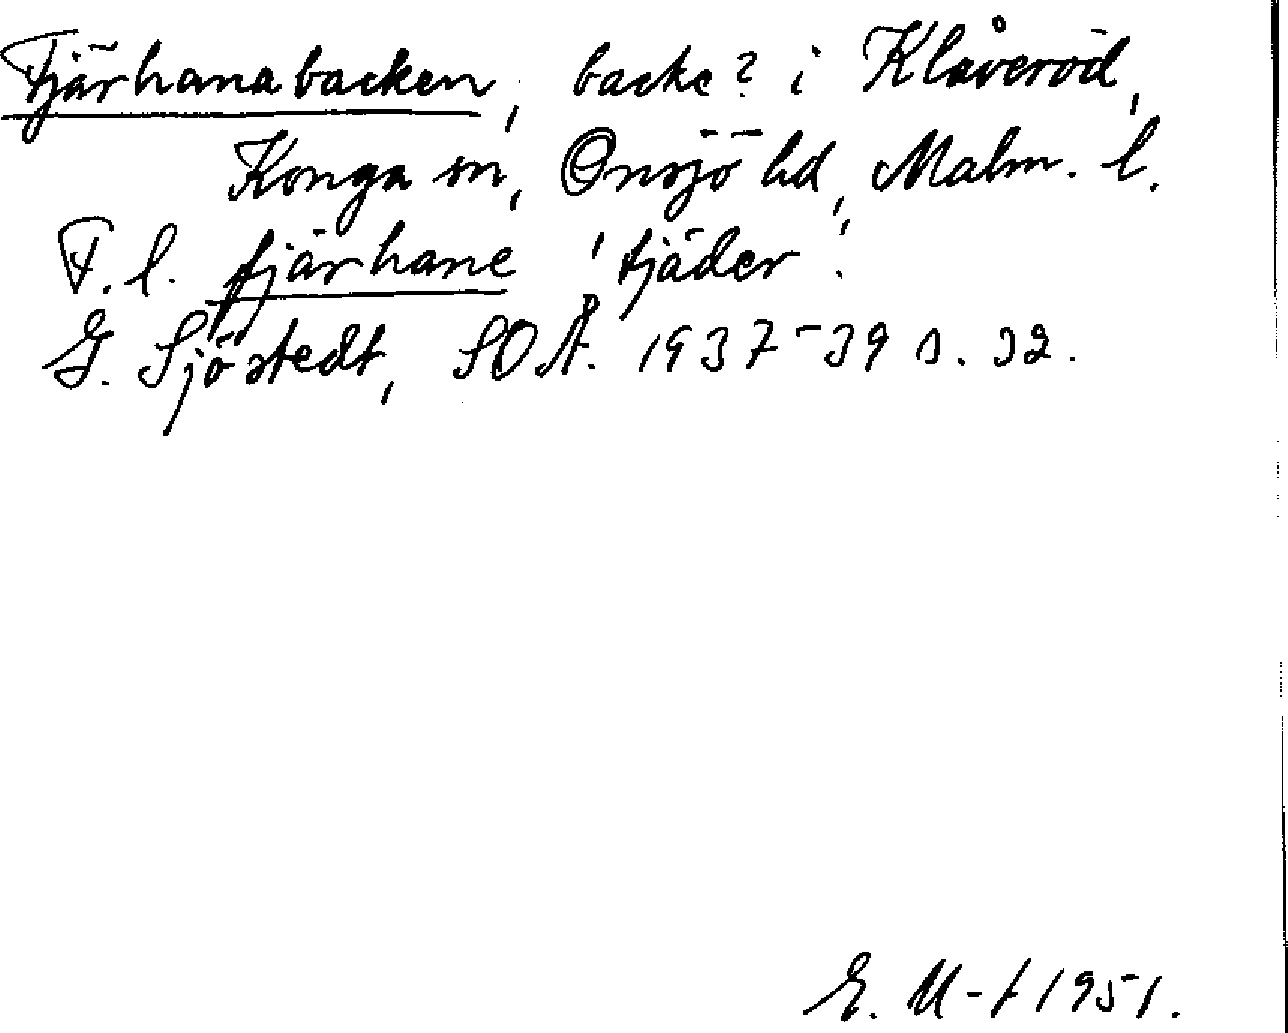 Fjärhanabacken, backe? i Klåveröd,
Konga sn, Onsjö hd, Malm. l.
F. l. fjärhane 'tjäder'.
G. Sjöstedt, SOÅ. 1937-39 s. 32.
E. U-t 1951.